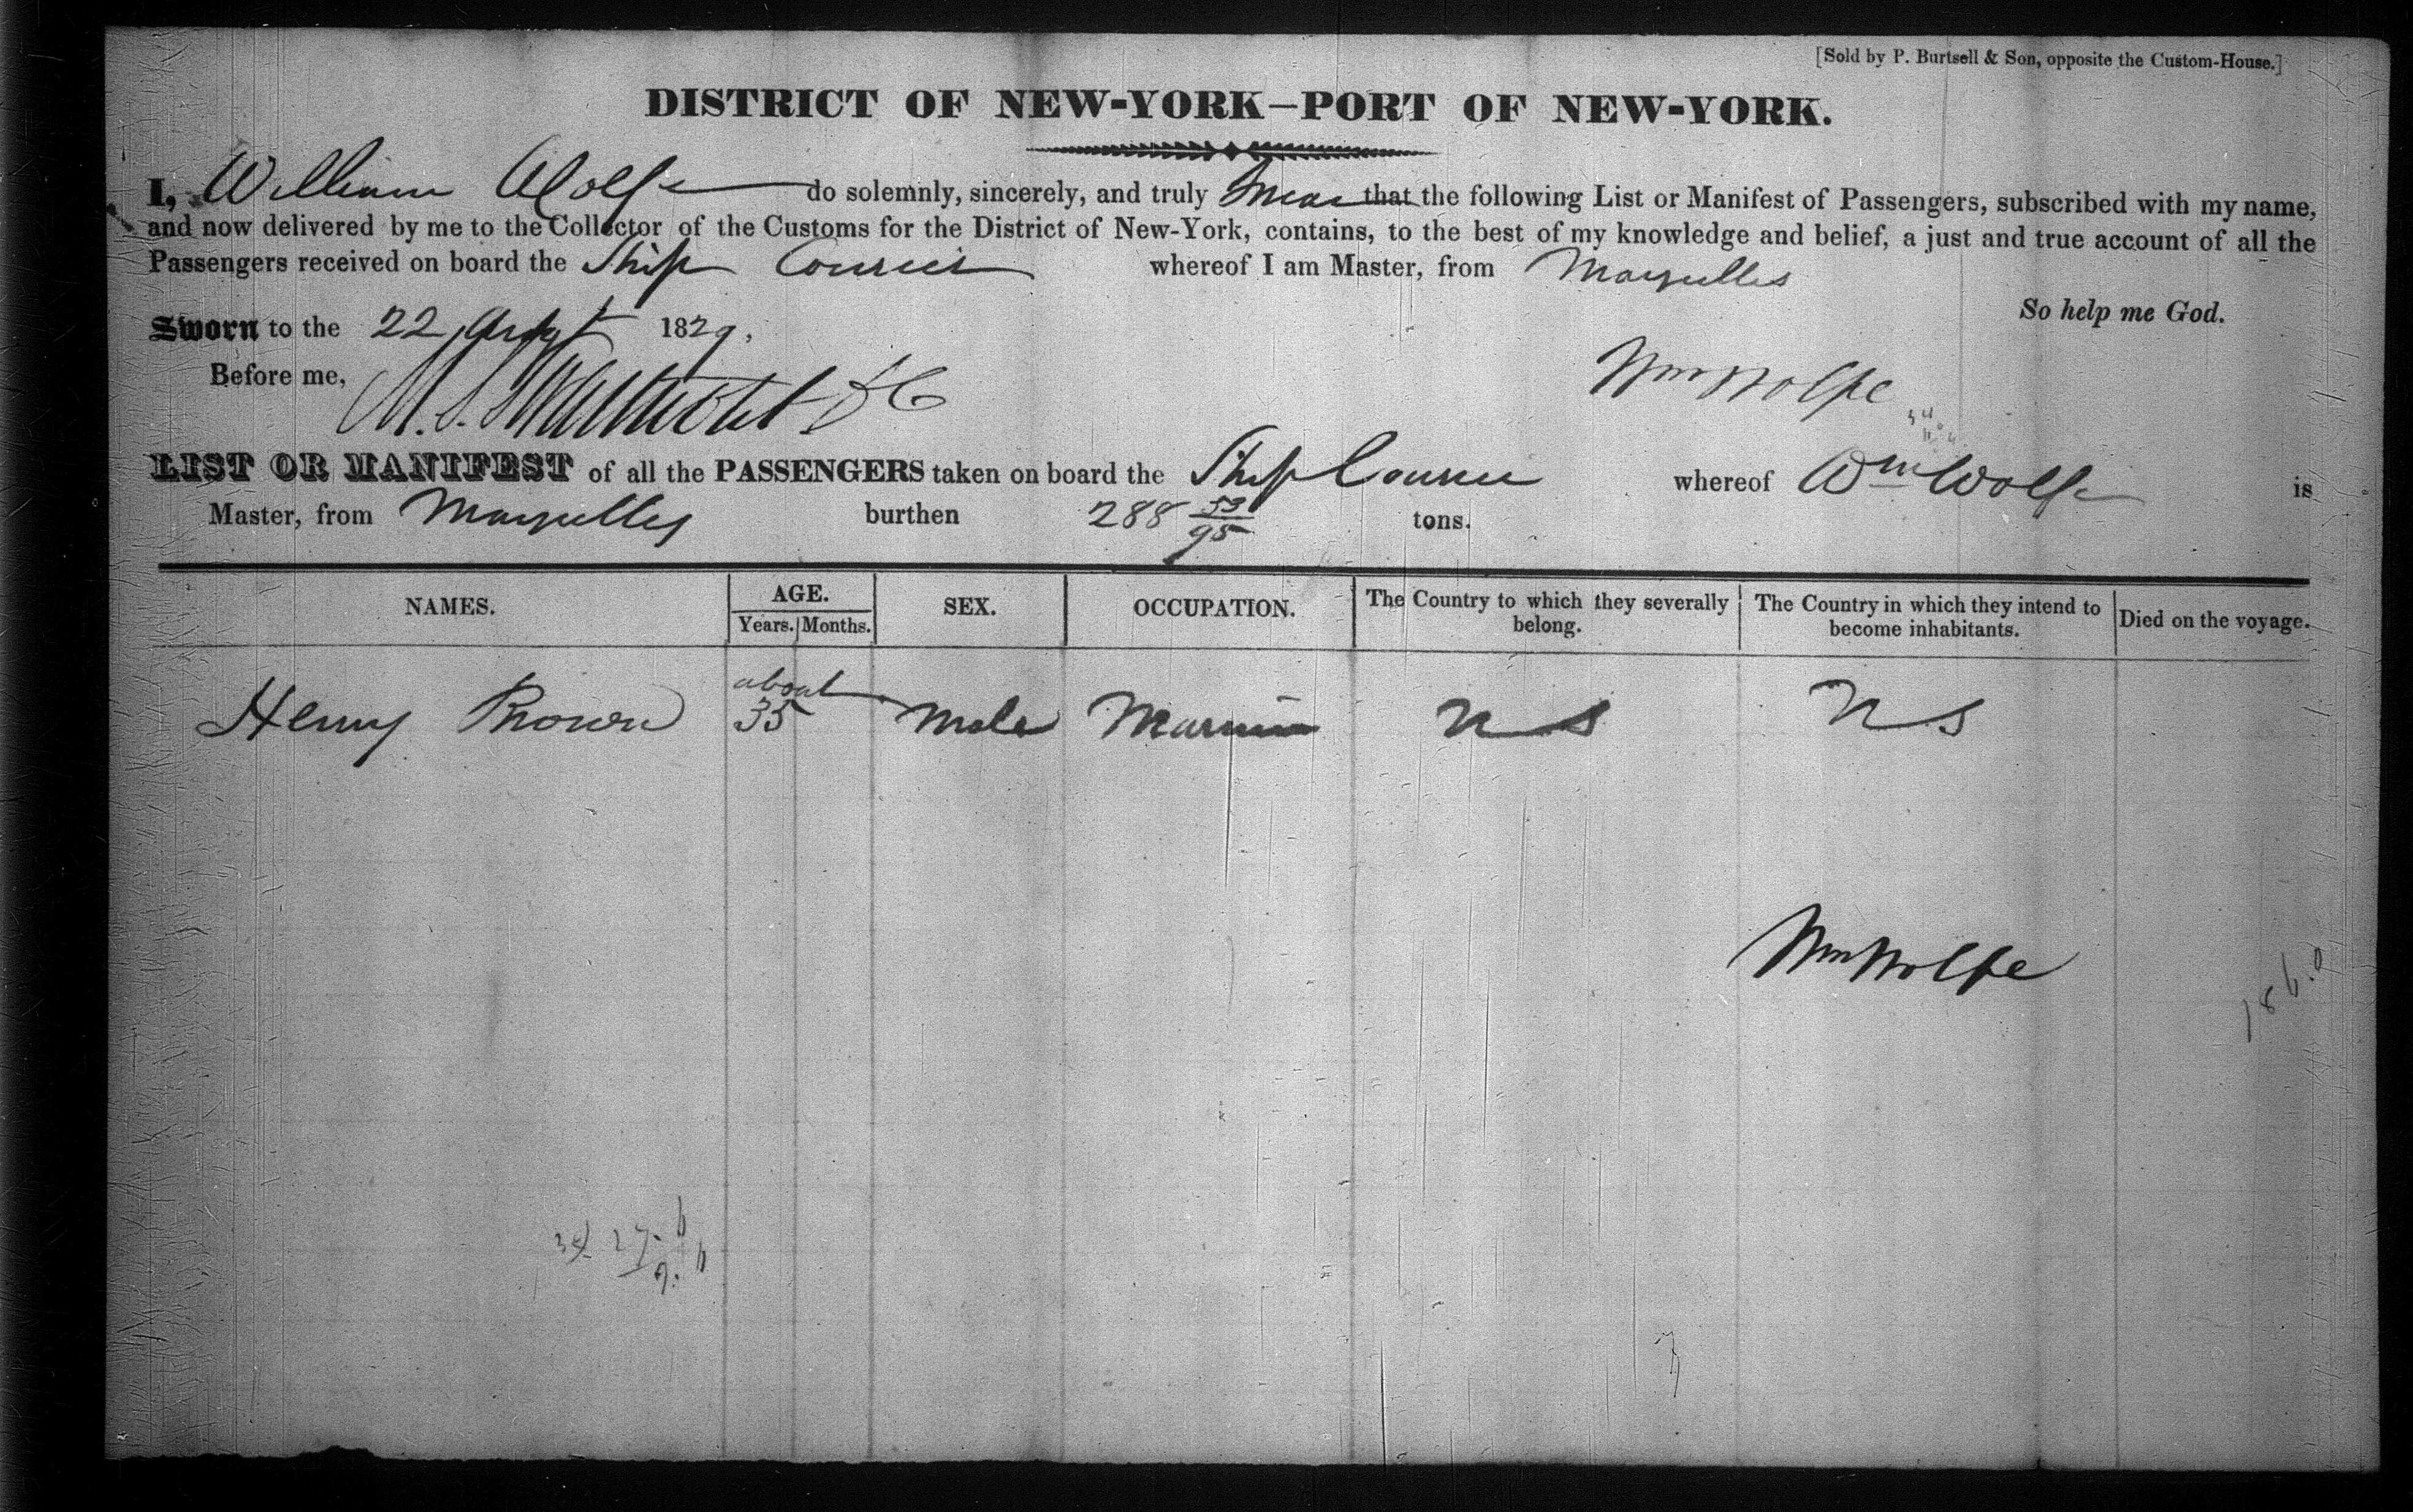 [Sold by P. Burtsell & Son, opposite the Custom-House.]
DISTRICT OF NEW-YORK—PORT OF NEW-YORK.
I, William Wolfe do solemnly, sincerely, and truly swear that the following List or Manifest of Passengers, subscribed with my name,
and now delivered by me to the Collector of the Customs for the District of New-York, contains, to the best of my knowledge and belief, a just and true account of all the
Passengers received on board the Ship Courier whereof I am Master, from Marseilles
So help me God.
Sworn to the 22 Augt 1829.
Before me,
Wm Wolfe
LIST OR MANIFEST of all the PASSENGERS taken on board the Ship Courier whereof Wm Wolfe is
Master, from Marseilles burthen 288 53/95 tons.
NAMES. AGE. Years. Months. SEX. OCCUPATION. The Country to which they severally belong. The Country in which they intend to become inhabitants. Died on the voyage.
Henry Brown about 35 Male Mariner U S U S
Wm Wolfe